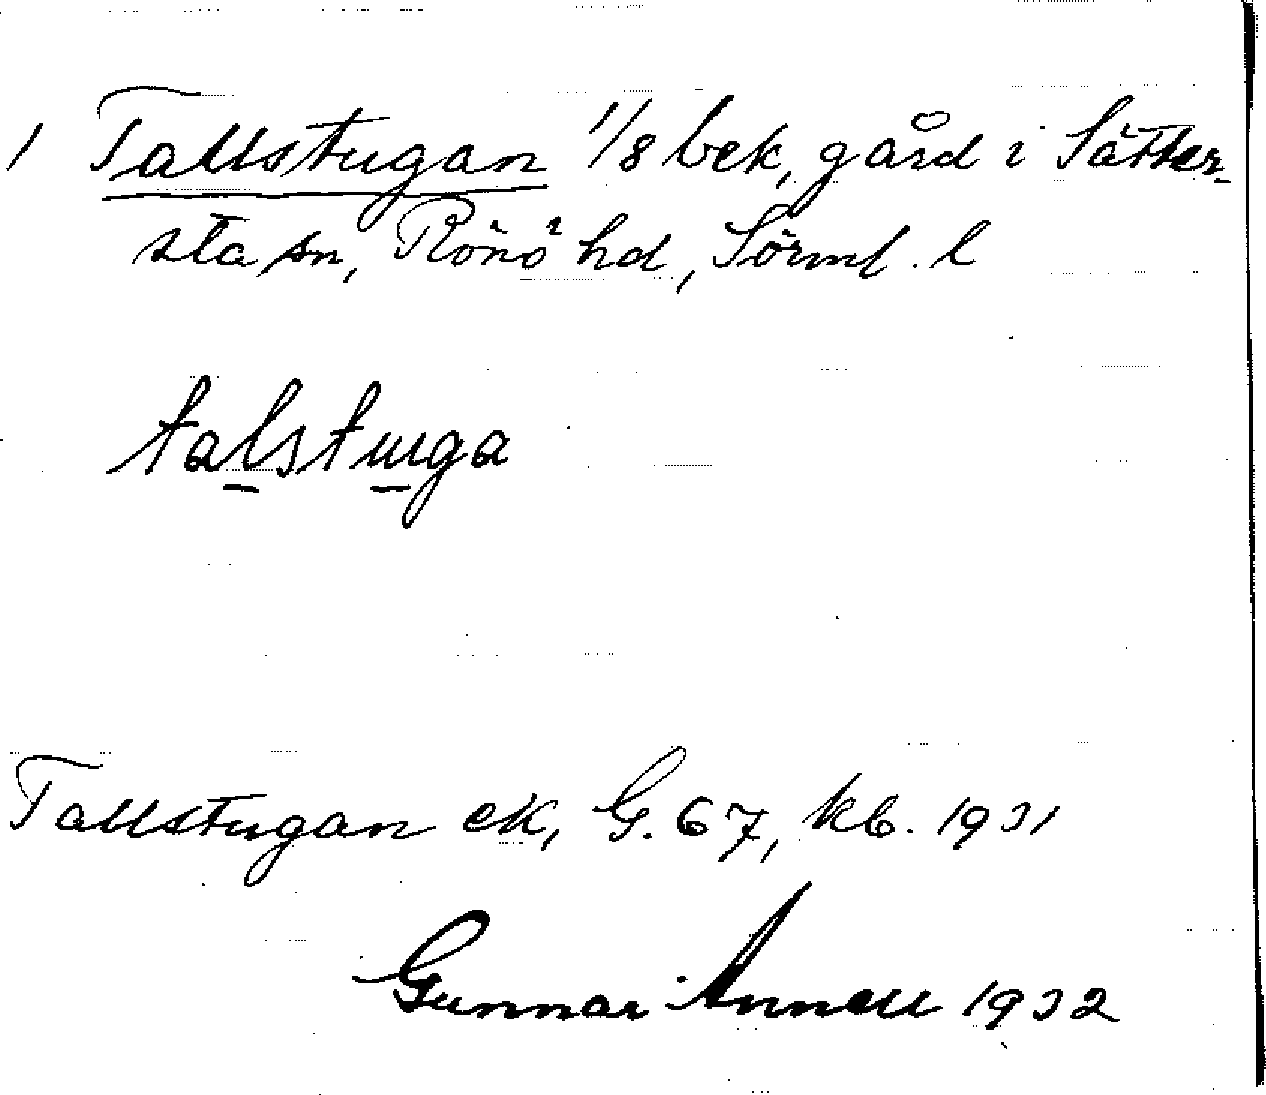 1 Tallstugan 1/8 bek, gård i Sätter-
sta sn, Rönö hd, Sörml. l
talstuga
Tallstugan ek, G. 67, kb. 1931
Gunnar Annell 1932